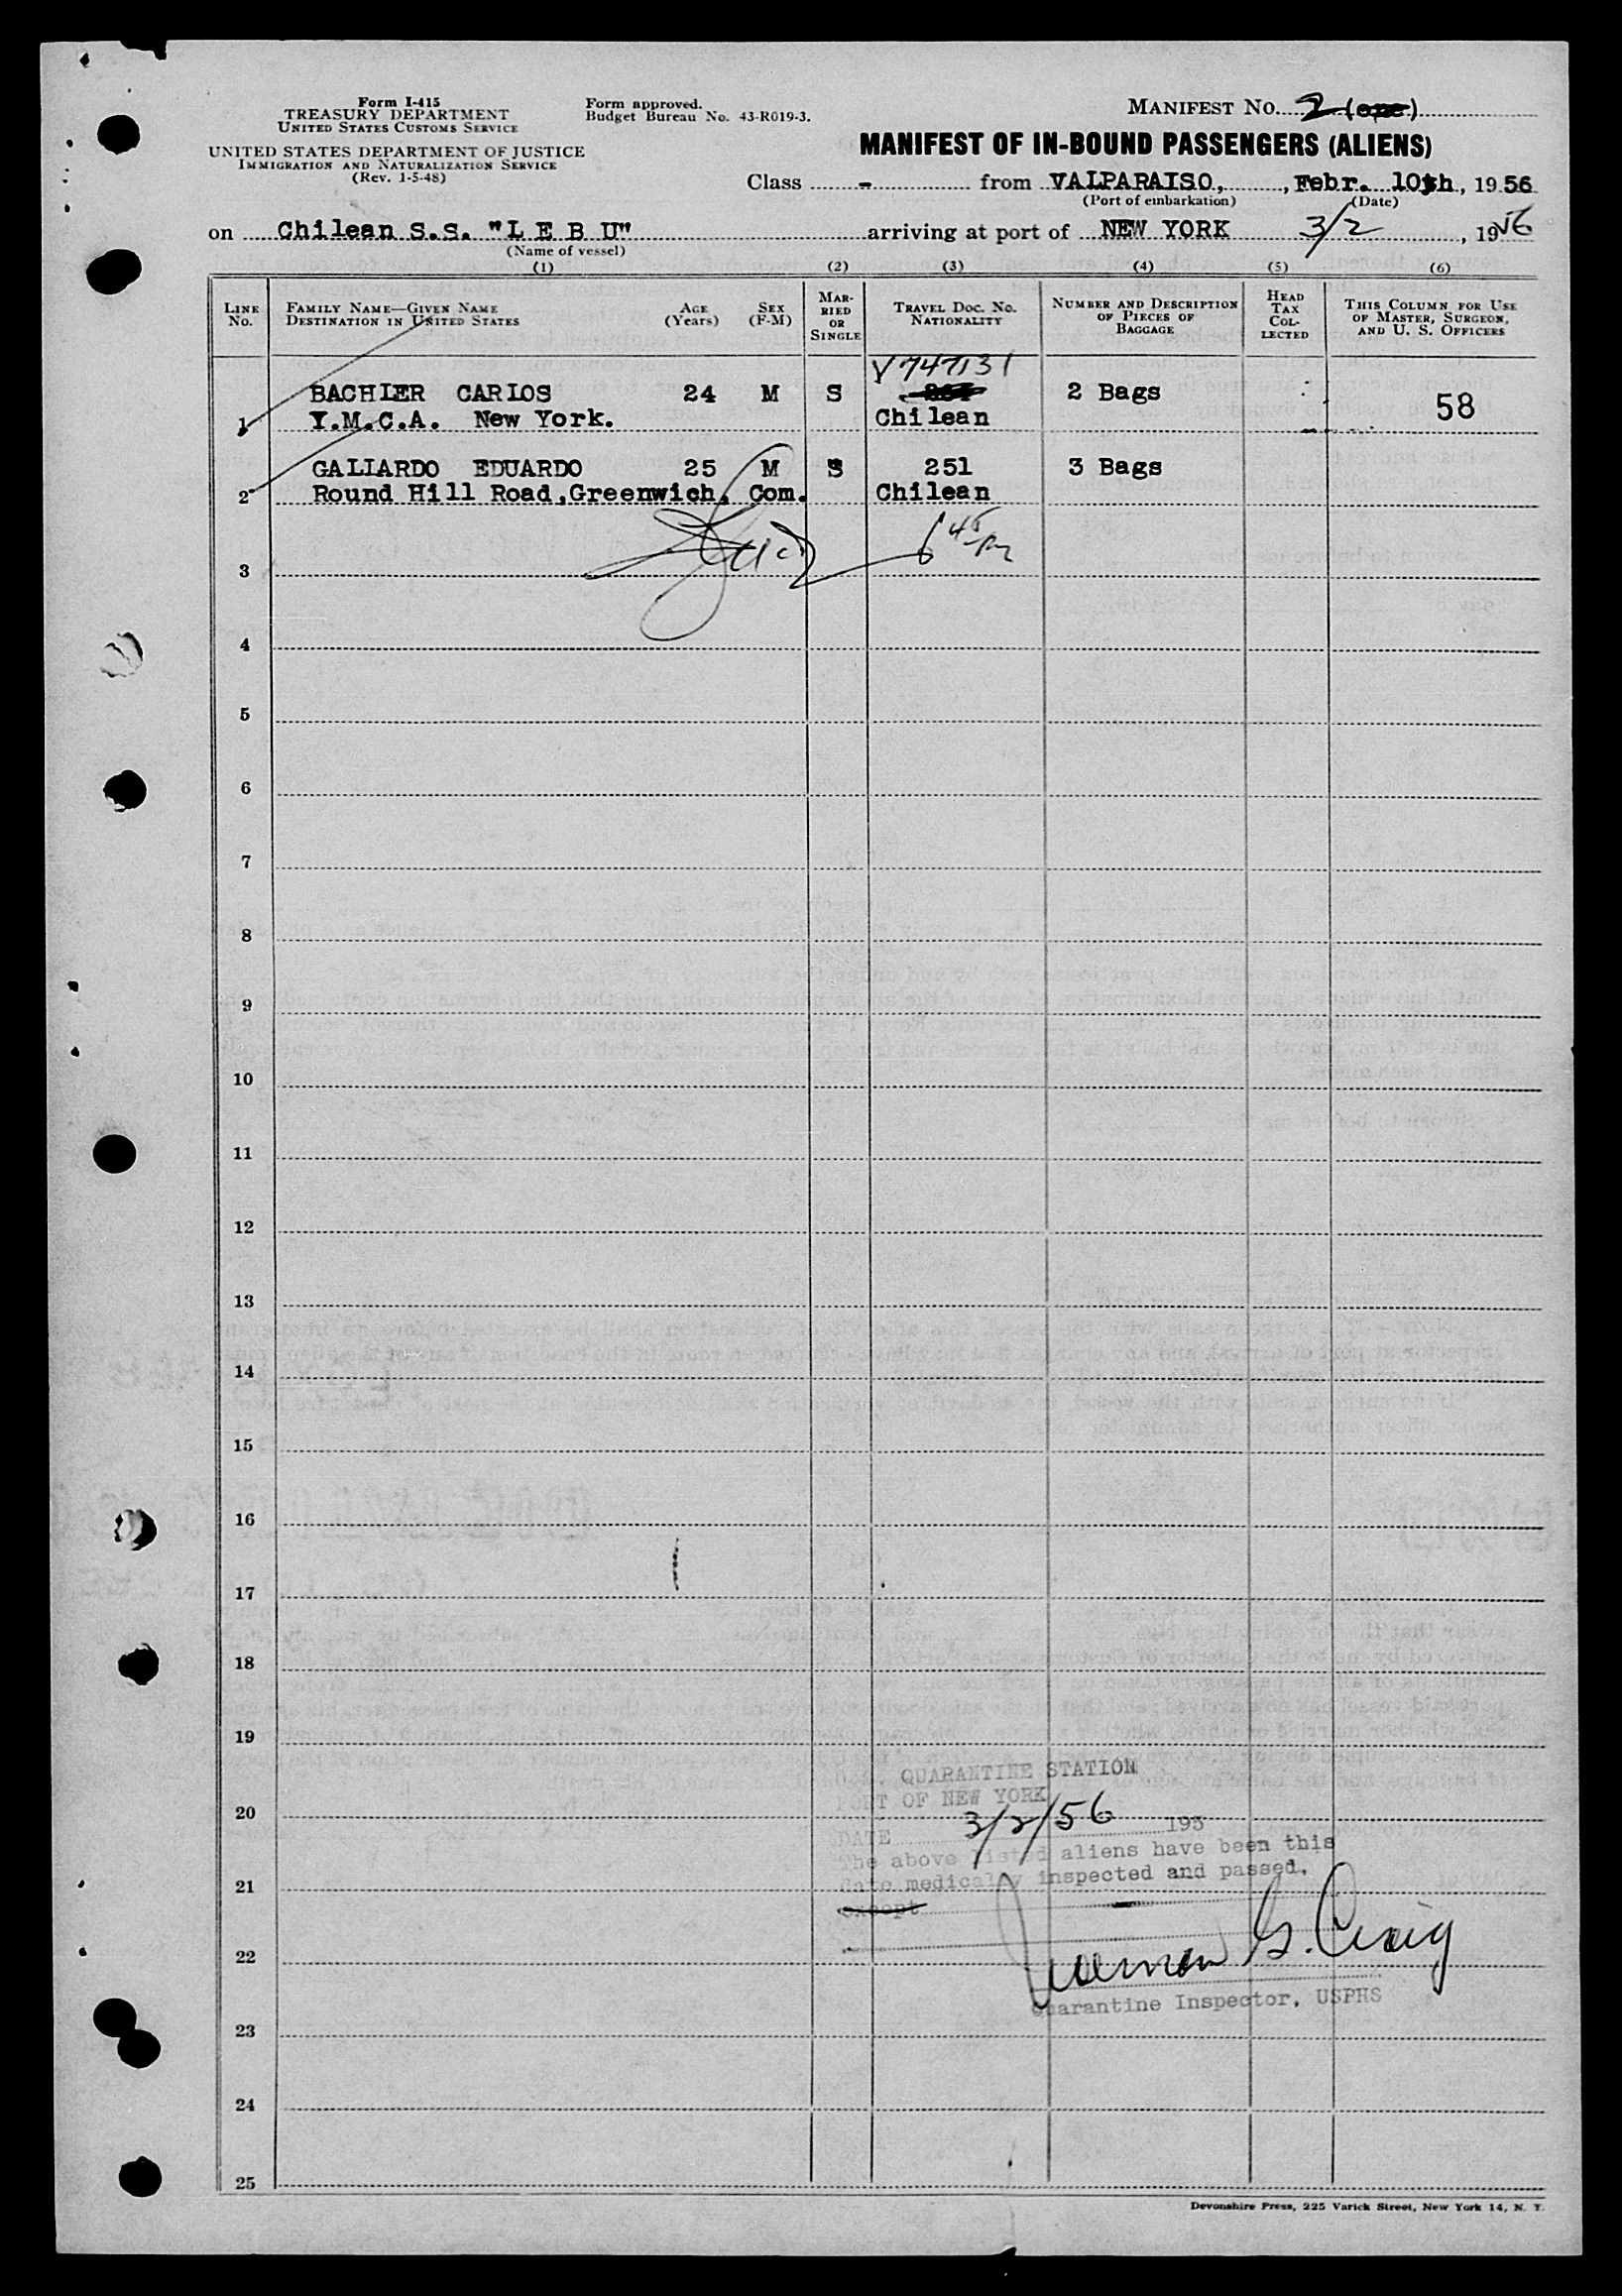 Form I-415
TREASURY DEPARTMENT
UNITED STATES CUSTOMS SERVICE
UNITED STATES DEPARTMENT OF JUSTICE
IMMIGRATION AND NATURALIZATION SERVICE
(Rev. 1-5-48)
Form approved.
Budget Bureau No. 43-R019-3.
MANIFEST NO. 2 (one)
MANIFEST OF IN-BOUND PASSENGERS (ALIENS)
Class - from VALPARAISO, , Febr. 10th, 1956
(Port of embarkation) (Date)
on Chilean S.S. "L E B U" arriving at port of NEW YORK 3/2, 1956
(Name of vessel)
(1) (2) (3) (4) (5) (6)
LINE NO.
FAMILY NAME—GIVEN NAME
DESTINATION IN UNITED STATES
AGE (Years)
SEX (F-M)
MARRIED OR SINGLE
TRAVEL DOC. NO. NATIONALITY
NUMBER AND DESCRIPTION OF PIECES OF BAGGAGE
HEAD TAX COLLECTED
THIS COLUMN FOR USE OF MASTER, SURGEON, AND U. S. OFFICERS
V747131
BACHIER CARLOS 24 M S 2 Bags 58
1 Y.M.C.A. New York. Chilean
GALIARDO EDUARDO 25 M S 251 3 Bags
2 Round Hill Road,Greenwich, Com. Chilean
6 45 pm
3
4
5
6
7
8
9
10
11
12
13
14
15
16
17
18
19
QUARANTINE STATION
PORT OF NEW YORK
20
DATE 3/2/56 195
The above listed aliens have been this
date medically inspected and passed.
21
except
22
G. Craig
Quarantine Inspector, USPHS
23
24
25
Devonshire Press, 225 Varick Street, New York 14, N. Y.